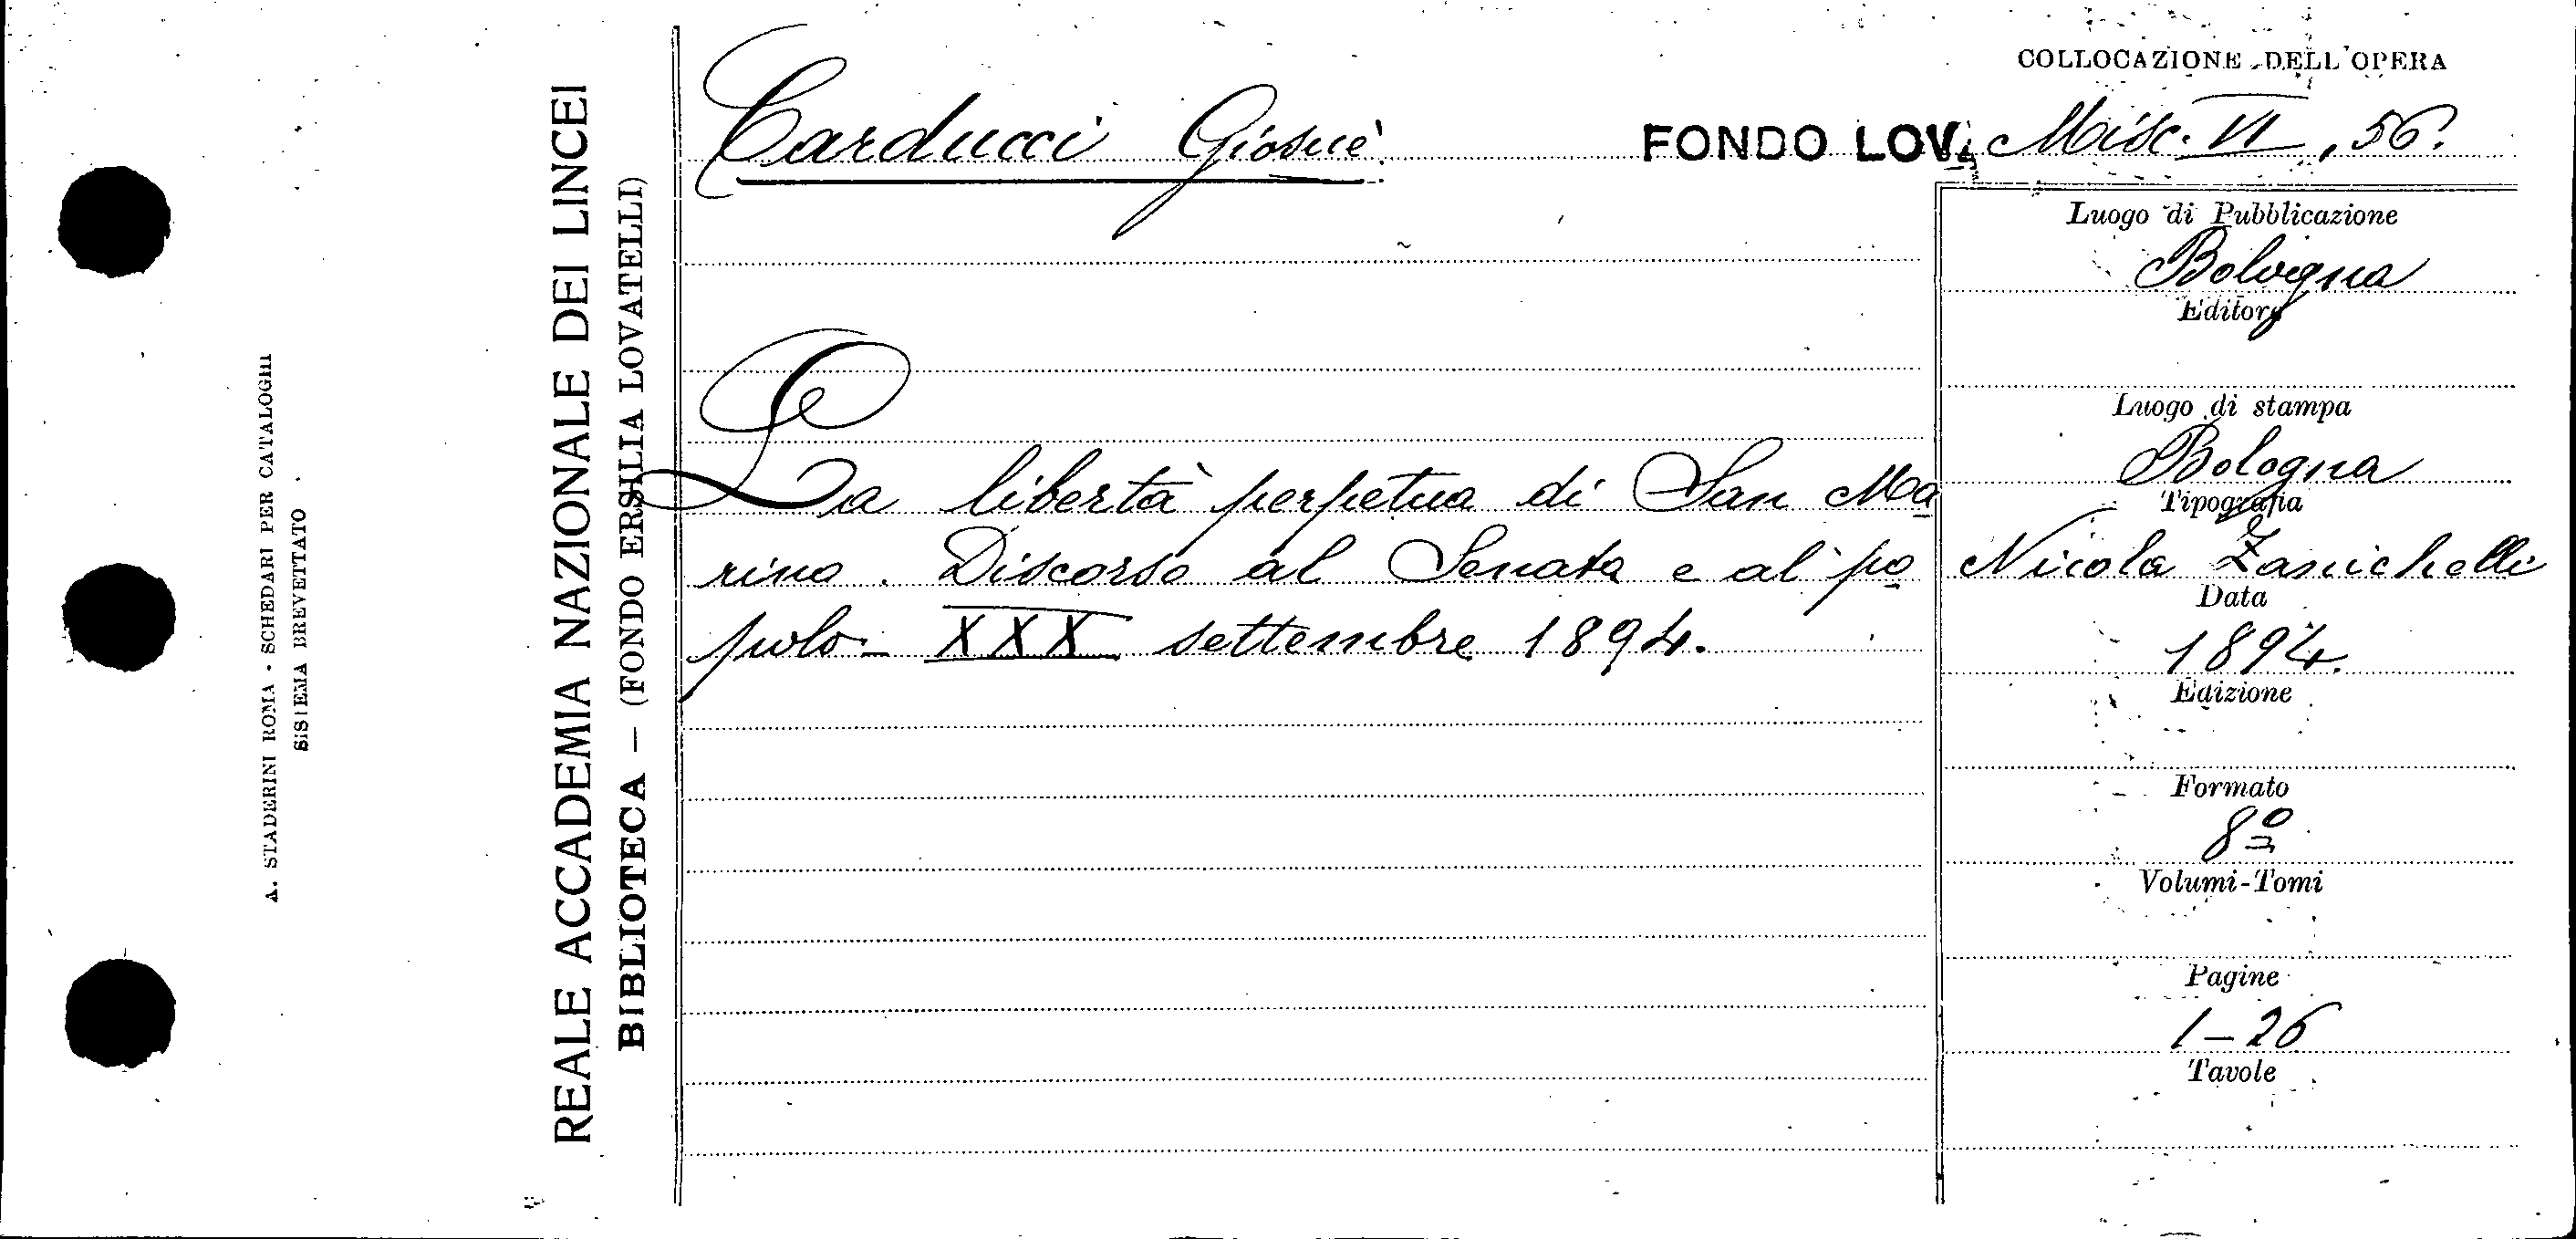 A. STADERINI ROMA - SCHEDARI PER CATALOGHI
SISTEMA BREVETTATO
REALE ACCADEMIA NAZIONALE DEI LINCEI
BIBLIOTECA — (FONDO ERSILIA LOVATELLI)
COLLOCAZIONE DELL'OPERA
Carducci Giosuè
FONDO LOV. Misc. VI, 56.
La libertà perpetua di San Ma
rino. Discorso al Senato e al po
polo - XXX settembre 1894.
Luogo di Pubblicazione
Bologna
Editore
Luogo di stampa
Bologna
Tipografia
Nicola Zanichelli
Data
1894.
Edizione
Formato
8º
Volumi-Tomi
Pagine
1-26
Tavole